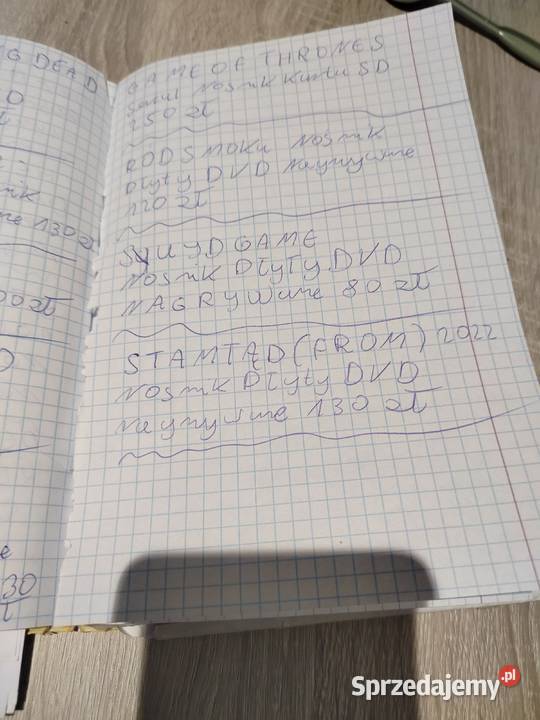 G DEAD
130 zł
00 zł
30
GAME OF THRONES
nosnik Karta SD
250 zł
ROD SMOKA nosnik
Płyty DVD nagrywane
120 zł
SQUYD GAME
nosnik Płyty DVD
NAGRYWane 80 zł
STAMTĄD (FROM) 2022
nosnik Płyty DVD
nagrywane 130 zł
Sprzedajemy.pl